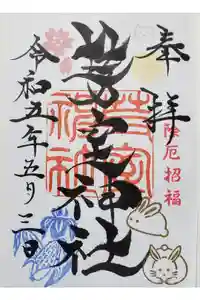 奉拝
除厄招福
神社
令和五年五月三日